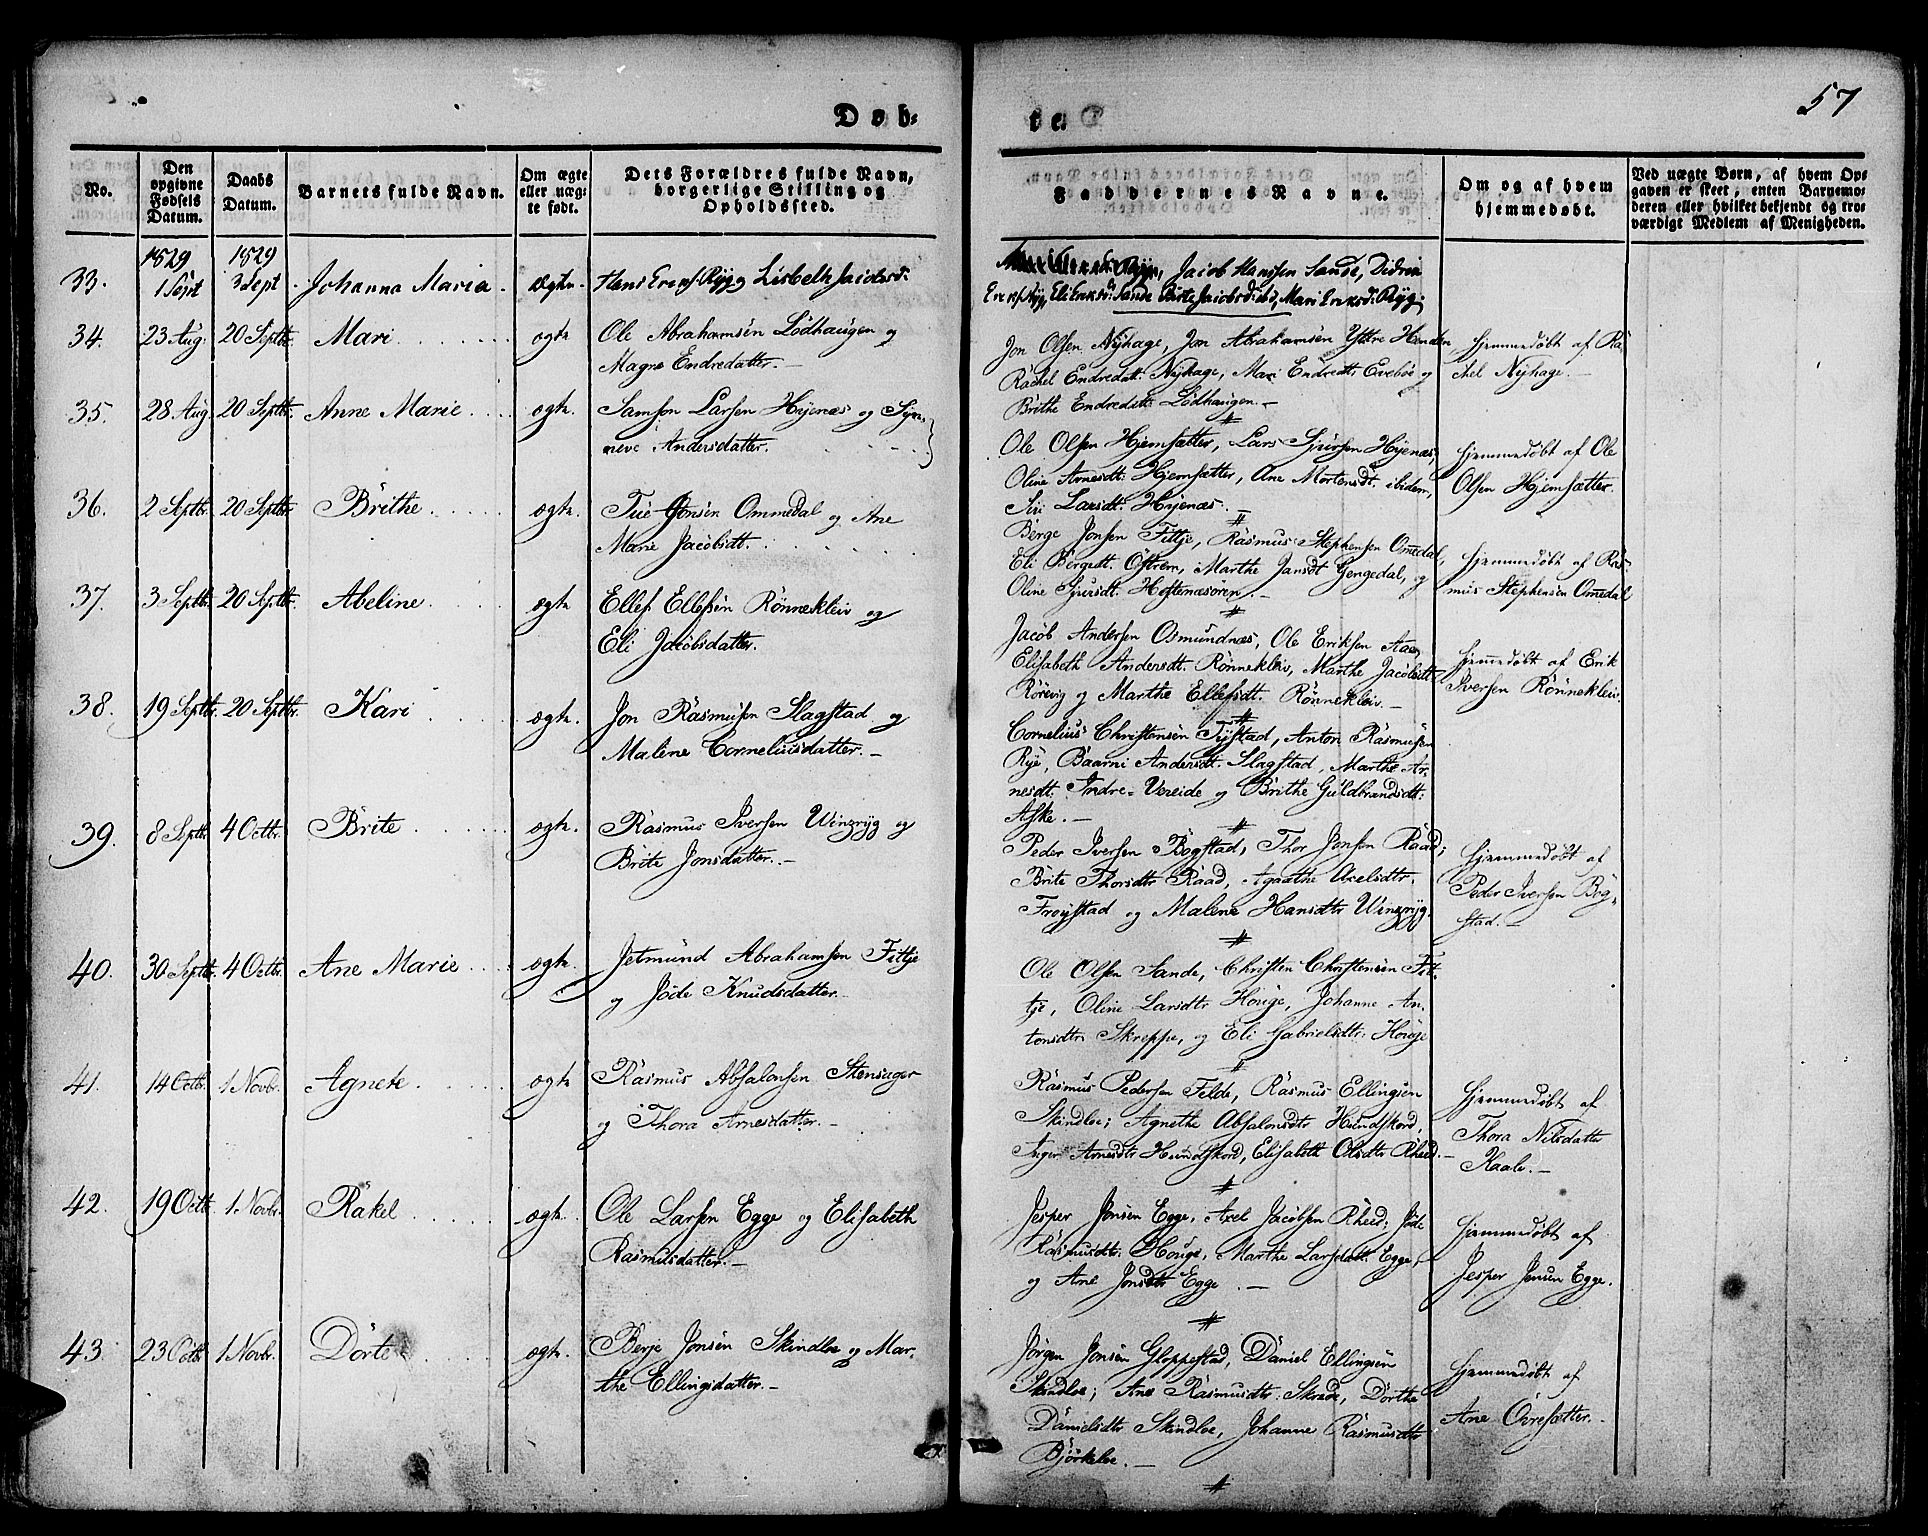 57
Døb-
te.
No.
Den opgivne Fødsels Datum.
Daabs Datum.
Barnets fulde Navn.
Om ægte eller uægte født.
Dets Forældres fulde Navn, borgerlige Stilling og Opholdssted.
Faddernes Navne.
Om og af hvem hjemmedøbt.
Ved uægte Børn, af hvem Opgaven er skeet, enten Barnemoderen eller hvilket bekjendt og troværdigt Medlem af Menigheden.
1829 1829
33. 1 Sept 3 Sept Johanna Maria ægte Hans Erichs: Ryg og Lisbeth Jacobsd:
Jacob Hanssen Sande, Didrik
Erichs: Ryg, Eli Eriksd: Sande Birte Jacobsd: ibd, Mari Eriksd: Ryg
34. 23 Aug: 20 Septbr. Mari ægte Ole Abrahamsen Lødhaugen og
Magne Endredatter.
Jon Olsen Nyhage, Jon Abrahamsen Yttre Henden,
Rachel Endredatt. Nyhage, Mari Endredtr Evebøe og
Brithe Endredatt: Lødhaugen.
hjemmedøbt af Ra-
chel Nyhage.
35. 28 Aug 20 Septbr. Anne Marie ægte Samson Larsen Hyenæs og Syn-
neve Andersdatter.
Ole Olsen Hjemsætter, Lars Sjursen Hyenæs,
Oline Arnesdt: Hjemsætter, Ane Mortensdt. ibidem,
Siri Larsdt: Hyenæs.
hjemmedøbt af Ole
Olsen Hjemsætter.
36. 2 Septbr. 20 Septbr. Brithe ægte Jonsen Ommedal og Ane
Marie Jacobsdt.
Berge Jonsen Fittje, Rasmus Stephensen Omedal,
Eli Bergett. Østrem, Marthe Jansdt Gengedal, og
Oline Sjursdt: Hestenæsøren.
hjemmedøbt af Ras-
mus Stephensen Omedal
37. 3 Septbr. 20 Septbr. Abeline ægte Ellef Ellefsen Rønnekleiv og
Eli Jacobsdatter.
Jacob Andersen Osmundnæs, Ole Eriksen Aaen,
Elisabeth Andersdt. Rønnekleiv, Marthe Jacobsdt
Rørevig og Marthe Ellefsdt. Rønnekleiv.
hjemmedøbt af Erik
Iversen Rønnekleiv.
38. 19 Septbr. 20 Septbr. Kari ægte Jon Rasmusen Slagstad og
Malene Corneliusdatter.
Cornelius Christensen Tystad, Anton Rasmusen
Rye, Baarni Andersdt. Slagstad, Marthe Ar-
nesdt. Indre-Vereide og Brithe Guldbrandsdt:
Aske.
39. 8 Septbr. 4 Octbr. Brite ægte Rasmus Iversen Wingryg og
Brite Jonsdatter.
Peder Iversen Bogstad, Thor Jonsen Raad,
Brite Thorsdtr Raad, Agaathe Axelsdtr.
Frøystad og Malene Hansdtr Wingryg.
hjemmedøbt af
Peder Iversen Bog-
stad.
40. 30 Septbr. 4 Octbr. Ane Marie ægte Jetmund Abrahamsen Fittje
og Jøde Knudsdatter.
Ole Olsen Sande, Christen Christensen Fit-
tje, Oline Larsdtr Houge, Johanne An-
tonsdtr Skreppe, og Eli Gabrielsdtr: Houge
41. 14 Octbr. 1 Novbr. Agnete ægte Rasmus Absalonsen Stensager
og Thora Arnesdatter.
Rasmus Pedersen Felde, Rasmus Ellingsen
Skindloe; Agnethe Absalonsdtr Hundskord,
Inger Arnesdtr Hundskord, Elisabeth Olsdtr Rheed.
hjemmedøbt af
Thora Nilsdatter
Kaale.
42. 19 Octb. 1 Novbr. Rakel ægte Ole Larsen Egge og Elisabeth
Rasmusdatter.
Jesper Jonsen Egge, Axel Jacobsen Rheed, Jøde
Rasmusdt: Houge, Marthe Larsdatt Egge,
og Ane Jonsdtr Egge.
hjemmedøbt af
Jesper Jonsen Egge.
43. 23 Octbr. 1 Novbr. Dorte ægte Berje Jonsen Skindloe og Mar-
the Ellingsdatter.
Jørgen Jonsen Gloppestad, Daniel Ellingsen
Skindloe; Ane Rasmusdtr: Skrede, Dorthe
Danielsdtr Skindloe, Johanne Rasmusdtr
Bjørkeloe.
hjemmedøbt af
Ane Øvresætter.